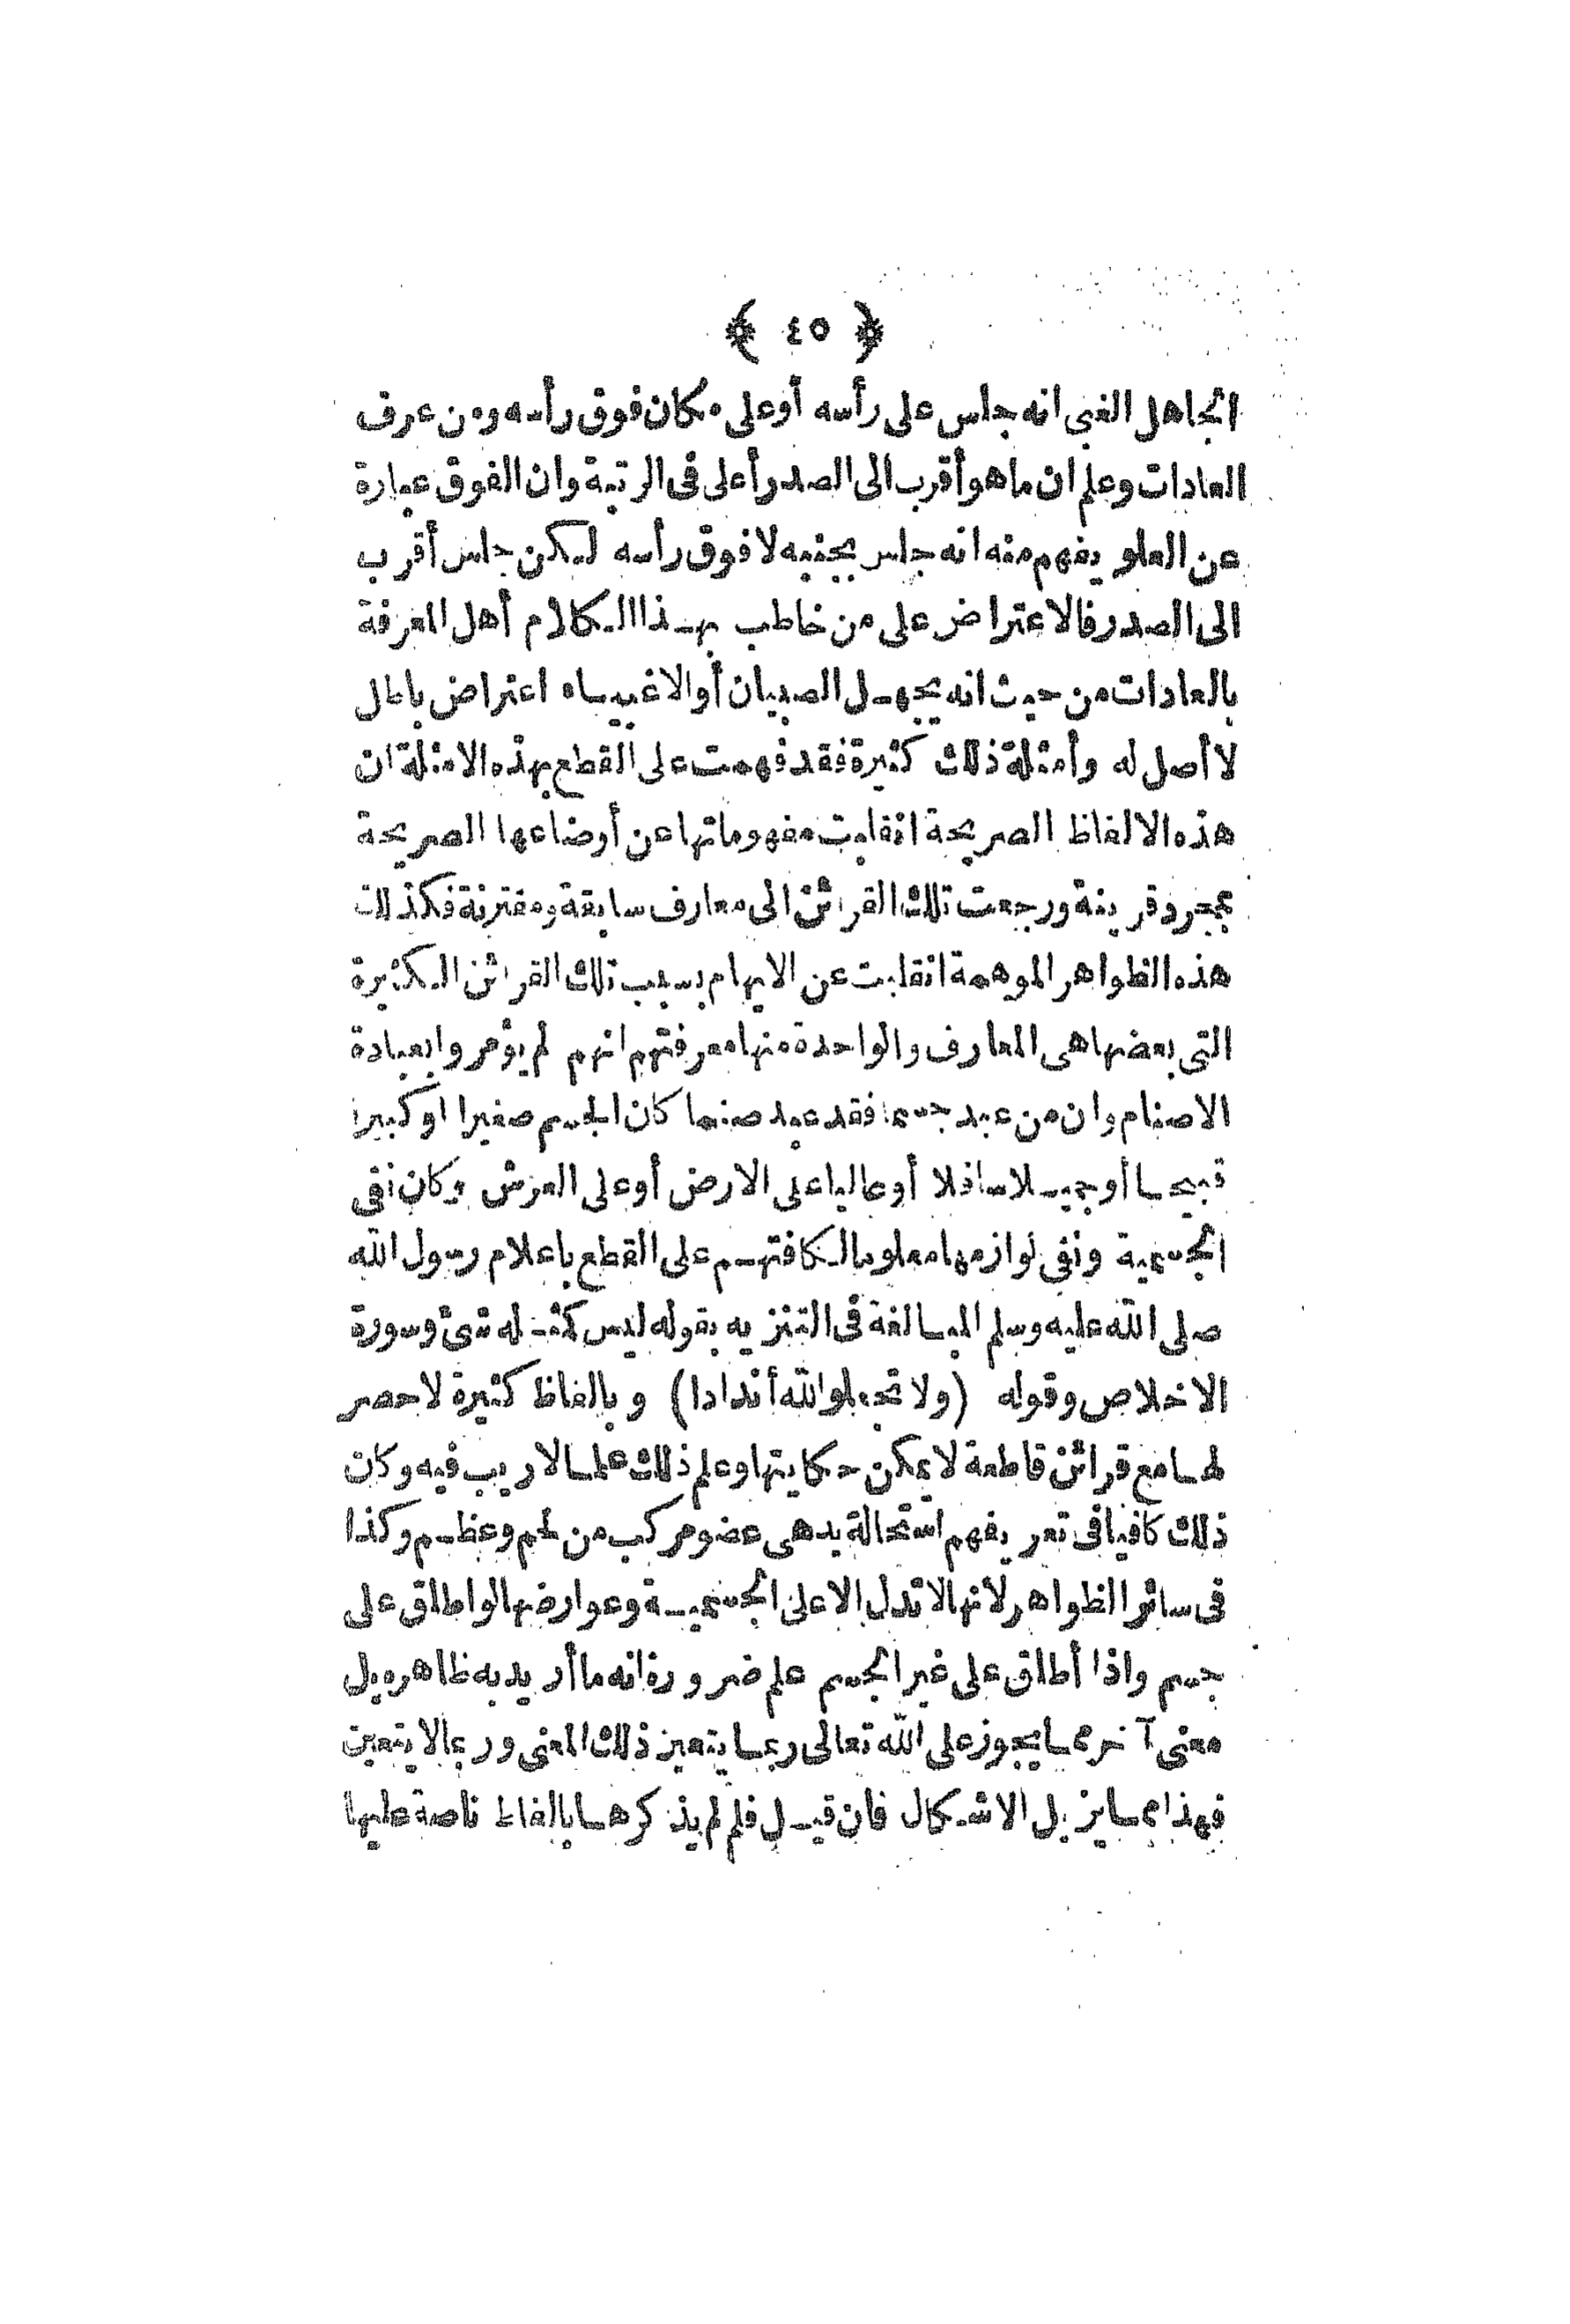 ﴿ ٤٥ ﴾
الجاهل الغبى انه جلس على رأسه أوعلى مكان فوق رأسه ومن عرف
العادات وعلم ان ماهو أقرب الى الصدر أعلى فى الرتبة وان الفوق عبارة
عن العلو يفهم منه انه جلس بجنبه لا فوق رأسه لكن جلس أقرب
الى الصدر فالاعتراض على من خاطب بهذا الكلام أهل المعرفة
بالعادات من حيث انه يجهل الصبيان أو الاغبياء اعتراض باطل
لا أصل له وأمثلة ذلك كثيرة فقد فهمت على القطع بهذه الامثلة ان
هذه الالفاظ الصريحة انقلبت مفهوماتها عن أوضاعها الصريحة
بمجرد قرينة ورجعت تلك القرائن الى معارف سابقة ومقترنة فكذلك
هذه الظواهر الموهمة انقلبت عن الايهام بسبب تلك القرائن الكثيرة
التى بعضها هى المعارف والواحدة منها معرفتهم انهم لم يؤمروا بعبادة
الاصنام وان من عبد جسما فقد عبد صنما كان الجسم صغيرا او كبيرا
قبيحا أو جميلا سافلا أو عاليا على الارض أو على العرش وكان نفى
الجسمية ونفى لوازمها معلوما لكافتهم على القطع باعلام رسول الله
صلى الله عليه وسلم المبالغة فى التنزيه بقوله ليس كمثله شئ وسورة
الاخلاص وقوله (ولا تجعلوا لله أندادا) وبالفاظ كثيرة لا حصر
لها مع قرائن قاطعة لا يمكن حكايتها وعلم ذلك علما لا ريب فيه وكان
ذلك كافيا فى تعريفهم استحالة يد هى عضو مركب من لحم وعظم وكذا
فى سائر الظواهر لأنها لا تدل الا على الجسمية وعوارضها لو اطلق على
جسم واذا أطلق على غير الجسم علم ضرورة انه ما أريد به ظاهره بل
معنى آخر مما يجوز على الله تعالى ربما يتعين ذلك المعنى وربما لا يتعين
فهذا مما يزيل الاشكال فان قيل فلم لم يذكرها بالفاظ ناصة عليها